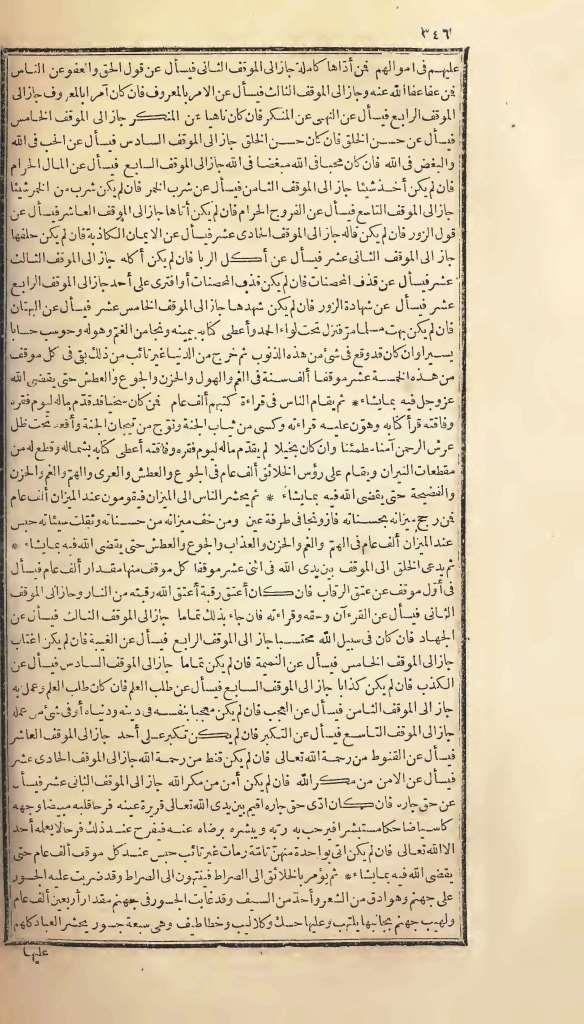 ٣٤٦
عليهم فى اموالهم فمن أداها كاملة جاز الى الموقف الثانى فيسأل عن قول الحق والعفو عن الناس
فمن عفا عفا الله عنه وجاز الى الموقف الثالث فيسأل عن الامر بالمعروف فان كان آمرا بالمعروف جاز الى
الموقف الرابع فيسأل عن النهى عن المنكر فان كان ناهيا عن المنكر جاز الى الموقف الخامس
فيسأل عن حسن الخلق فان كان حسن الخلق جاز الى الموقف السادس فيسأل عن الحب فى الله
والبغض فى الله فان كان محبا فى الله مبغضا فى الله جاز الى الموقف السابع فيسأل عن المال الحرام
فان لم يكن أخذ شيئا جاز الى الموقف الثامن فيسأل عن شرب الخمر فان لم يكن شرب من الخمر شيئا
جاز الى الموقف التاسع فيسأل عن الفروج الحرام فان لم يكن أتاها جاز الى الموقف العاشر فيسأل عن
قول الزور فان لم يكن قاله جاز الى الموقف الحادى عشر فيسأل عن الايمان الكاذبة فان لم يكن حلفها
جاز الى الموقف الثانى عشر فيسأل عن أكل الربا فان لم يكن أكله جاز الى الموقف الثالث
عشر فيسأل عن قذف المحصنات فان لم يكن قذف المحصنات أو افترى على أحد جاز الى الموقف الرابع
عشر فيسأل عن شهادة الزور فان لم يكن شهدها جاز الى الموقف الخامس عشر فيسأل عن البهتان
فان لم يكن بهت مسلما مر فنزل تحت لواء الحمد وأعطى كتابه بيمينه ونجا من الغم وهوله وحوسب حسابا
يسيرا وان كان قد وقع فى شئ من هذه الذنوب ثم خرج من الدنيا غير تائب من ذلك بقى فى كل موقف
من هذه الخمسة عشر موقفا ألف سنة فى الغم والهول والحزن والجوع والعطش حتى يقضى الله
عز وجل فيه بما يشاء * ثم يقام الناس فى قراءة كتبهم ألف عام فمن كان سخيا قد قدم ماله ليوم فقره
وفاقته قرأ كتابه وهون عليه قراءته وكسى من ثياب الجنة وتوج من تيجان الجنة وأقعد تحت ظل
عرش الرحمن آمنا مطمئنا وان كان بخيلا لم يقدم ماله ليوم فقره وفاقته أعطى كتابه بشماله وقطع له من
مقطعات النيران ويقام على رؤس الخلائق ألف عام فى الجوع والعطش والعرى والهم والغم والحزن
والفضيحة حتى يقضى الله فيه بما يشاء * ثم يحشر الناس الى الميزان فيقومون عند الميزان ألف عام
فمن رجح ميزانه بحسناته فاز ونجا فى طرفة عين ومن خف ميزانه من حسناته وثقلت سيئاته حبس
عند الميزان ألف عام فى الهم والغم والحزن والعذاب والجوع والعطش حتى يقضى الله فيه بما يشاء *
ثم يدعى الخلق الى الموقف بين يدى الله فى اثنى عشر موقفا كل موقف منها مقدار ألف عام فيسأل
فى أول موقف عن عتق الرقاب فان كان أعتق رقبة أعتق الله رقبته من النار وجاز الى الموقف
الثانى فيسأل عن القرءآن وحقه وقراءته فان جاء بذلك تماما جاز الى الموقف الثالث فيسأل عن
الجهاد فان كان فى سبيل الله محتسبا جاز الى الموقف الرابع فيسأل عن الغيبة فان لم يكن اغتاب
جاز الى الموقف الخامس فيسأل عن النميمة فان لم يكن نماما جاز الى الموقف السادس فيسأل عن
الكذب فان لم يكن كذابا جاز الى الموقف السابع فيسأل عن طلب العلم فان كان طلب العلم وعمل به
جاز الى الموقف الثامن فيسأل عن العجب فان لم يكن معجبا بنفسه فى دينه ودنياه أو فى شئ من عمله
جاز الى الموقف التاسع فيسأل عن التكبر فان لم يكن تكبر على أحد جاز الى الموقف العاشر
فيسأل عن القنوط من رحمة الله تعالى فان لم يكن قنط من رحمة الله جاز الى الموقف الحادى عشر
فيسأل عن الامن من مكر الله فان لم يكن أمن من مكر الله جاز الى الموقف الثانى عشر فيسأل
عن حق جاره فان كان ادى حق جاره اقيم بين يدى الله تعالى قريرة عينه فرحا قلبه مبيضا وجهه
كاسيا ضاحكا مستبشرا فيرحب به ربه ويبشره برضاه عنه فيفرح عند ذلك فرحا لا يعلمه أحد
الا الله تعالى فان لم يكن اتى بواحدة منهن تامة ومات غير تائب حبس عند كل موقف ألف عام حتى
يقضى الله فيه بما يشاء * ثم يؤمر بالخلائق الى الصراط فينتهون الى الصراط وقد ضربت عليه الجسور
على جهنم وهو ادق من الشعر وأحد من السيف وقد غابت الجسور فى جهنم مقدار أربعين ألف عام
ولهيب جهنم بجانبها يلتهب وعليها حسك وكلاليب وخطاطيف وهى سبعة جسور يحشر العباد كلهم
عليها